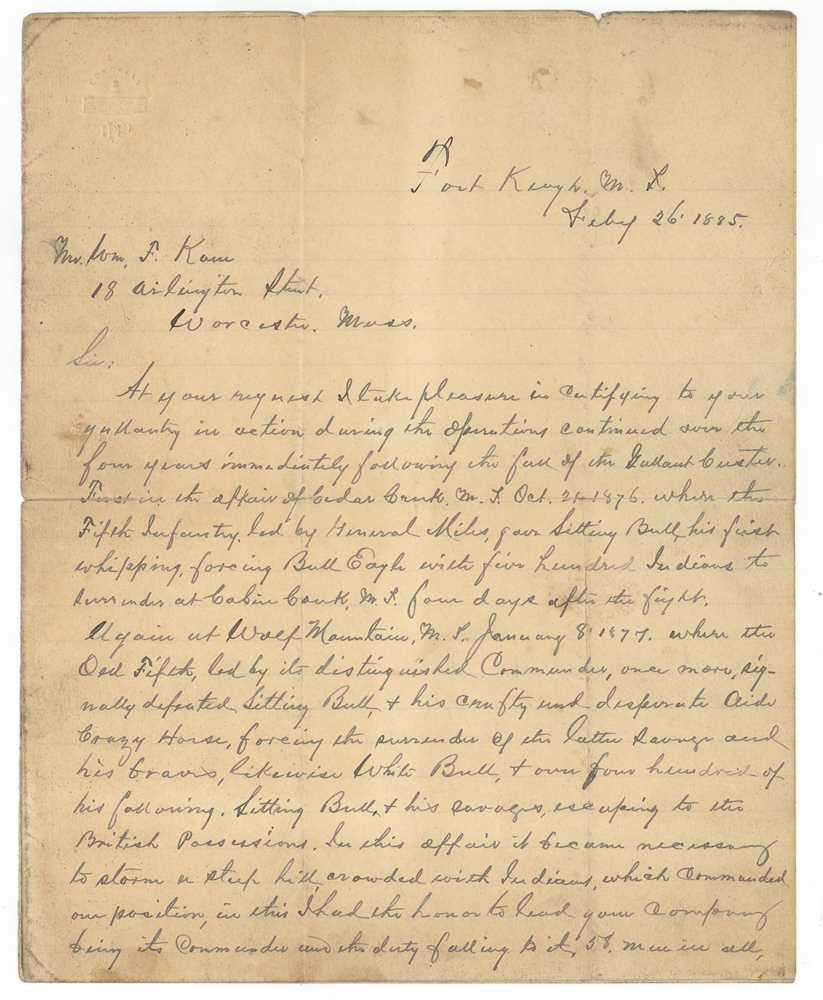 Fort Keogh. M. T.
Feby 26' 1885.
Mr. Wm. F. Kane
18 Arlington Street,
Worcester. Mass.
Sir:
At your request I take pleasure in certifying to your
gallantry in action during the operations continued over the
four years immediately following the fall of the Gallant Custer.
First in the affair of Cedar Creek, M. T. Oct. 21-1876. where the
Fifth Infantry, led by General Miles, gave Sitting Bull, his first
whipping, forcing Bull Eagle with five hundred Indians to
surrender at Cabin Creek, M. T. four days after the fight.
Again at Wolf Mountain, M. T. January 8' 1877. where the
Old Fifth, led by its distinguished Commander, once more, sig-
nally defeated Sitting Bull, & his crafty and desperate Aide
Crazy Horse, forcing the surrender of the latter savage and
his braves, likewise White Bull, & over four hundred of
his following. Sitting Bull, & his savages, escaping to the
British Possessions. In this affair it became necessary
to storm a steep hill crowded with Indians, which Commanded
our position, in this I had the honor to lead your Company
being its Commander and the duty falling to it, 58. men in all,